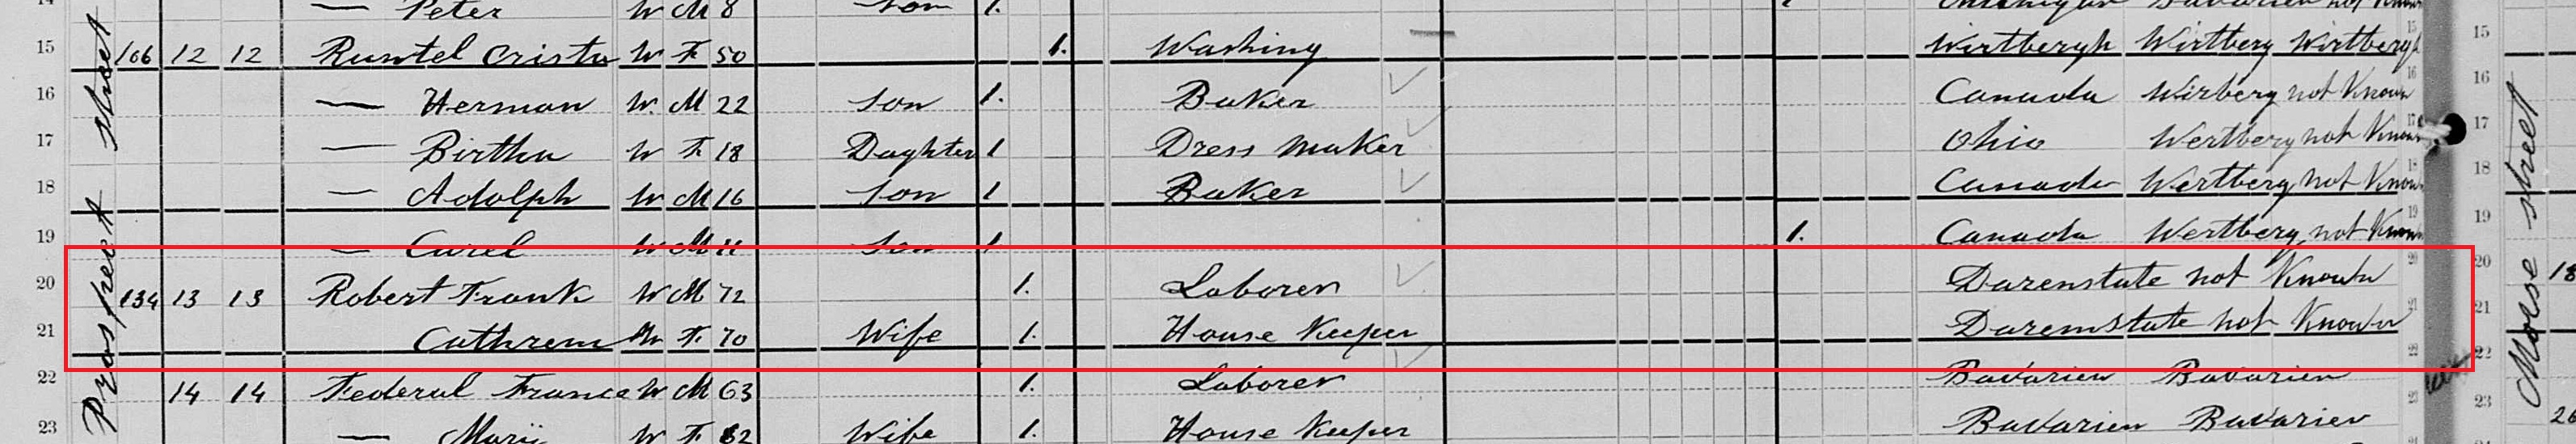 Peter W M 8 Son 1.
15 166 12 12 Runtel Crista W F 50 1. Washing Wirtbergh Wirtberg Wirtbergh 15
16 — Herman W. M 22 Son 1. Baker Canada Wirberg not Known 16
17 — Birtha W F 18 Daghter 1 Dress Maker Ohio Wertberg not Known 17
18 — Adolph W M 16 Son 1 Baker Canada Wertberg not Known 18
19 — Carel W M 11 Son 1 1. Canada Wertberg not Known 19
20 134 13 13 Robert Frank W M 72 1. Laborer Darenstate not Known 20
21 Cathrem W F. 70 Wife 1. House Keeper Daremstate not Known 21
22 14 14 Federal France W M 63 1. Laborer Bavarien Bavarien 22
23 — Marii W F 62 Wife 1. House Keeper Bavarien Bavarien 23
Prospect Street
Morse street